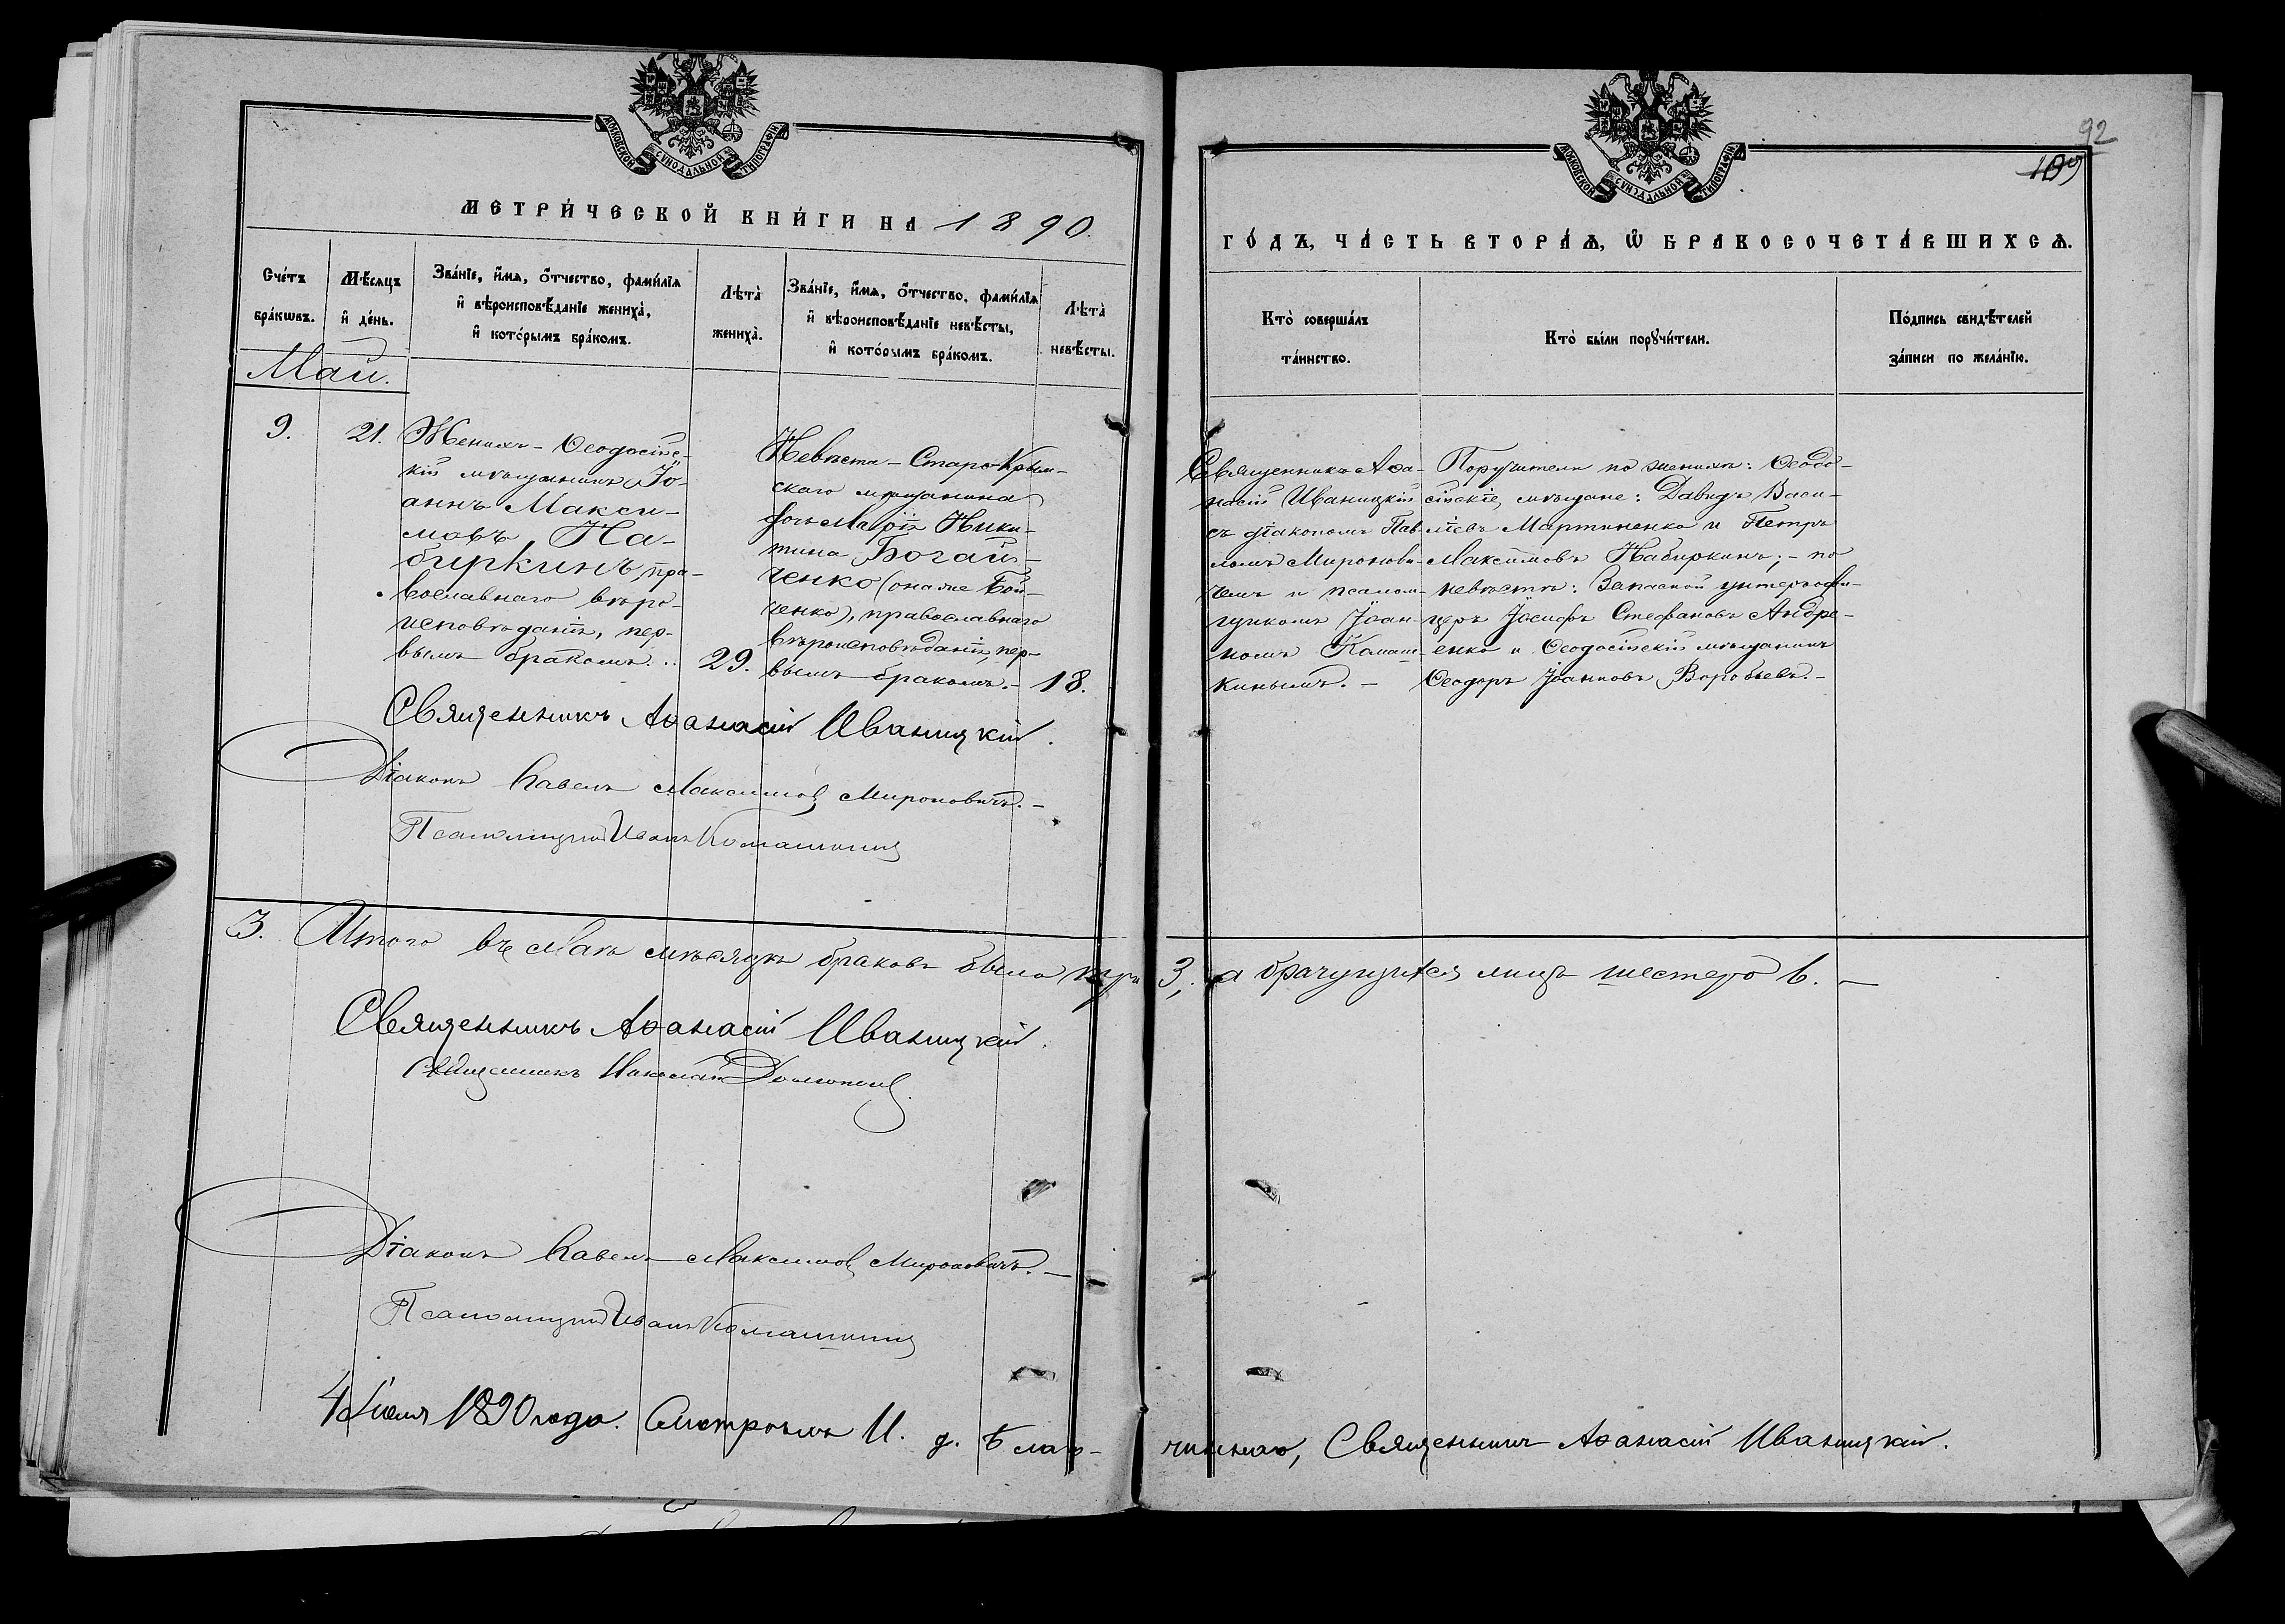 МОСКОВСКОЙ СѴНОДАЛЬНОЙ ТИПОГРАФІИ
МЕТРИ́ЧЕСКОЙ КНИ́ГИ НА 1890.
Сче́тъ бра́кωвъ.
Мѣ́сяцъ и҆ де́нь.
Зва́нїе, и҆́мѧ, ѻ҆́тчество, фами́лїѧ
и҆ вѣроисповѣ́данїе жениха̀,
и҆ кото́рымъ бра́комъ.
Лѣта̀ жениха̀.
Зва́нїе, и҆́мѧ, ѻ҆́тчество, фами́лїѧ
и҆ вѣроисповѣ́данїе невѣ́сты,
и҆ кото́рымъ бра́комъ.
Лѣта̀ невѣ́сты.
Май.
9.
21.
Женихъ - Ѳеодосійс-
кій мѣщанинъ Іо-
аннъ Макси-
мовъ На-
биркинъ, пра-
вославнаго вѣро-
исповѣданія, пер-
вымъ бракомъ...
29.
Невѣста - Старо-Крым-
скаго мѣщанина
дочь Марія Ники-
тина Богай-
ченко (она же Бой-
ченко), православнаго
вѣроисповѣданія, пер-
вымъ бракомъ. -
18.
Священникъ Аѳанасій Иваницкій.
Діаконъ Павелъ Максимов Мироновичъ. -
Псаломщикъ Иванъ Комашкинъ
3. Итого въ Маѣ мѣсяцѣ браковъ было три
Священникъ Аѳанасій Иваницкій.
Священникъ Николай
Діаконъ Павелъ Максимов Мироновичъ. -
Псаломщикъ Иванъ Комашкинъ
4 Іюля 1890 года. Смотрѣлъ И. д. Благо-
92
109
МОСКОВСКОЙ СѴНОДАЛЬНОЙ ТИПОГРАФІИ
ГО́ДЪ, ЧА́СТЬ ВТОРА́Ѧ, Ѡ҆ БРАКОСОЧЕТА́ВШИХСѦ.
Кто̀ соверша́лъ та́инство.
Кто̀ бы́ли порꙋчи́тели.
По́дпись свидѣ́телей за́писи по жела́нїю.
Священникъ Аѳа-
насій Иваницкій
съ діакономъ Пав-
ломъ Миронови-
чемъ и псалом-
щикомъ Іоан-
номъ Комаш-
кинымъ. -
Поручители по женихѣ: Ѳеодо-
сійскіе, мѣщане: Давидъ Васи-
ліевъ Мартыненко и Петръ
Максимовъ Набиркинъ; - по
невѣстѣ: Запасной унтеръ-офи-
церъ Іосифъ Стефановъ Андре-
енко и Ѳеодосійскій мѣщанинъ
Ѳеодоръ Іоанновъ Воробьевъ. -
3, а брачущихся лицъ шестеро 6. -
чиннаго, Священникъ Аѳанасій Иваницкій.